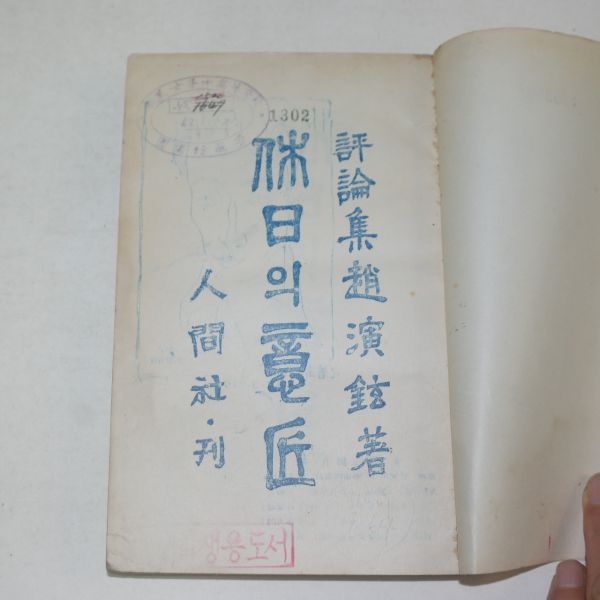 1302
評論集 趙演鉉著
休日의意匠
人間社·刊
생용도서